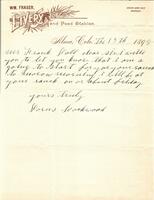 WM. FRASER,
LIVERY
and Feed Stables.
Alma, Colo. Dec 13th 1899
Frank Hall dear sir I write
you to let you know that I am a
going to start for your ranch
to morrow morning I will be at
your ranch on or about Friday
yours truly
Lockwood